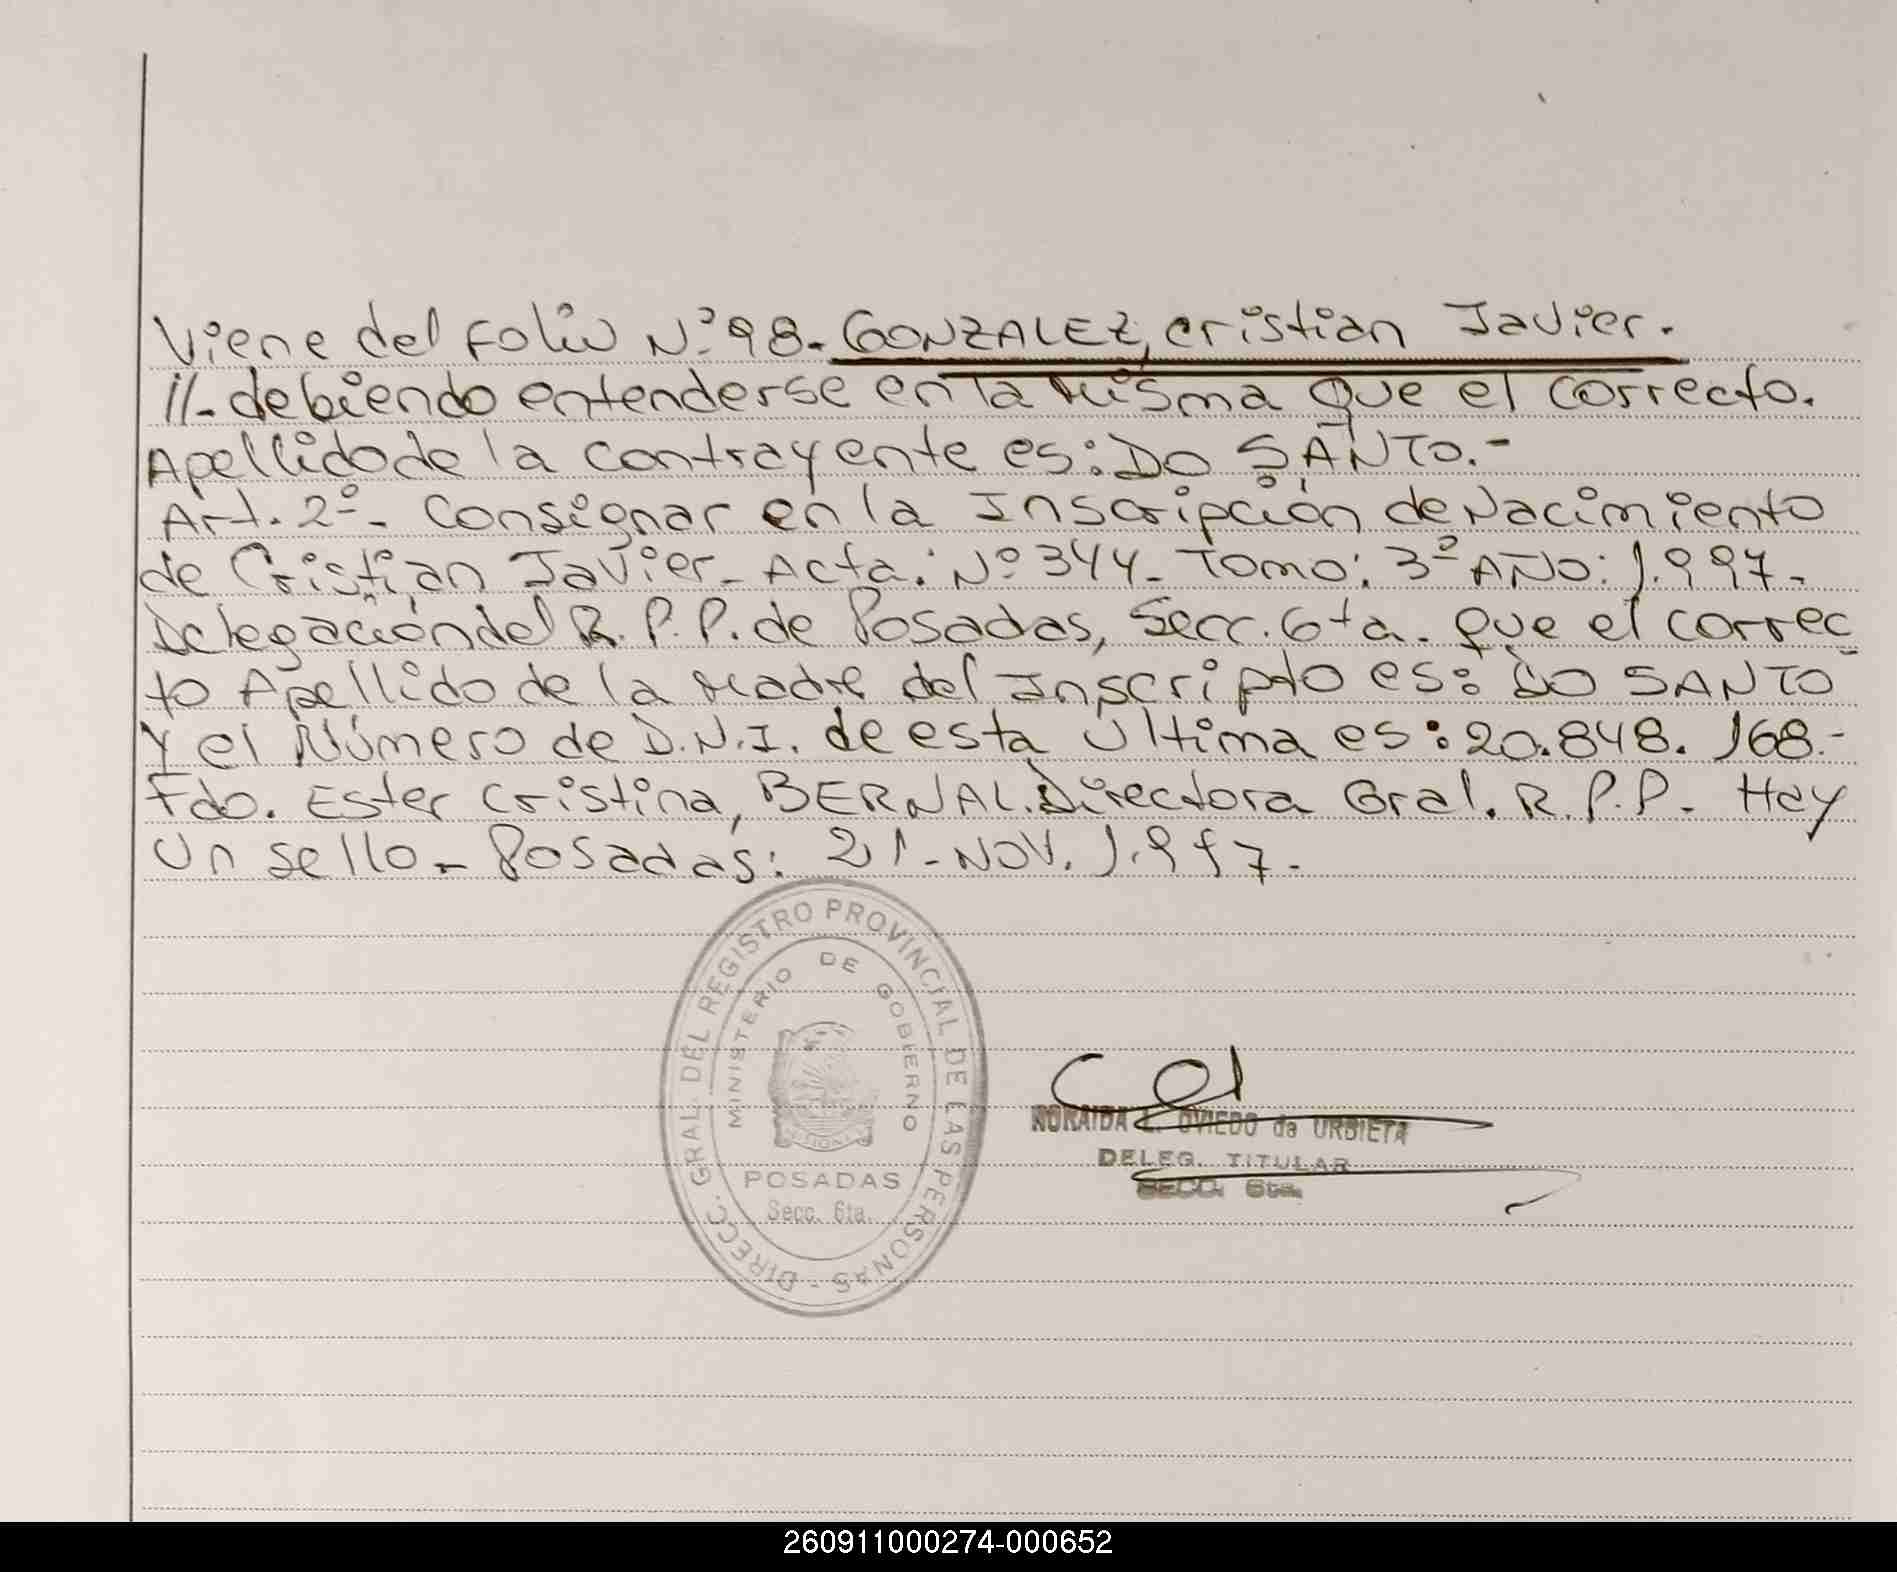 Viene del Folio Nº 98. GONZALEZ, cristian Javier.
//- debiendo entenderse en la misma que el correcto.
Apellido de la contrayente es: DO SANTO.-
Art. 2º- Consignar en la Inscripción de Nacimiento
de Cristian Javier- Acta: Nº 344- Tomo: 3º AÑO: 1.997-
Delegación del R.P.P. de Posadas, Secc. 6ta. que el correc
to Apellido de la Madre del Inscripto es: DO SANTO
Y el Número de D.N.I. de esta Última es: 20.848.168.-
Fdo. Ester Cristina, BERNAL. Directora Gral. R.P.P.- Hay
Un sello- Posadas: 21-NOV. 1.997-
DIRECC. GRAL. DEL REGISTRO PROVINCIAL DE LAS PERSONAS -
MINISTERIO DE GOBIERNO
POSADAS
Secc. 6ta.
NORAIDA L. OVIEDO de URBIETA
DELEG. TITULAR
SECC. 6ta.
260911000274-000652